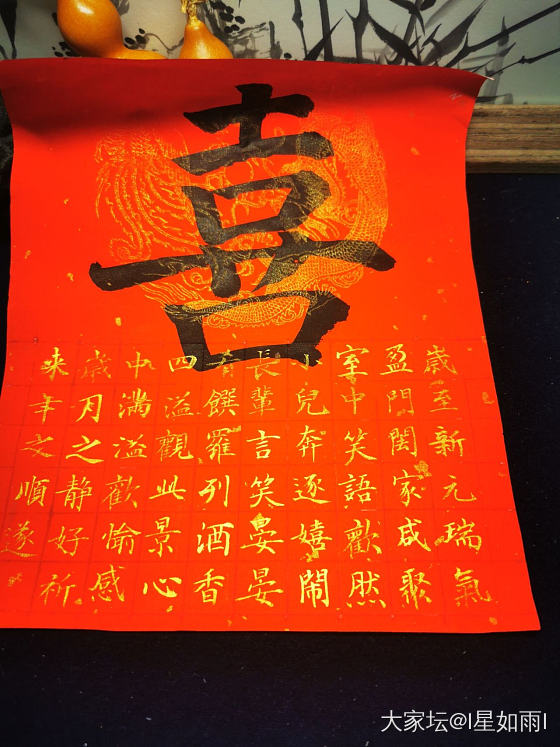 喜
歲至新元瑞氣
盈門闔家咸聚
室中笑語歡然
小兒奔逐嬉鬧
長輩言笑晏晏
肴饌羅列酒香
四溢觀此景心
中滿溢歡愉感
歲月之静好祈
来年之順遂
大家坛@I星如雨I